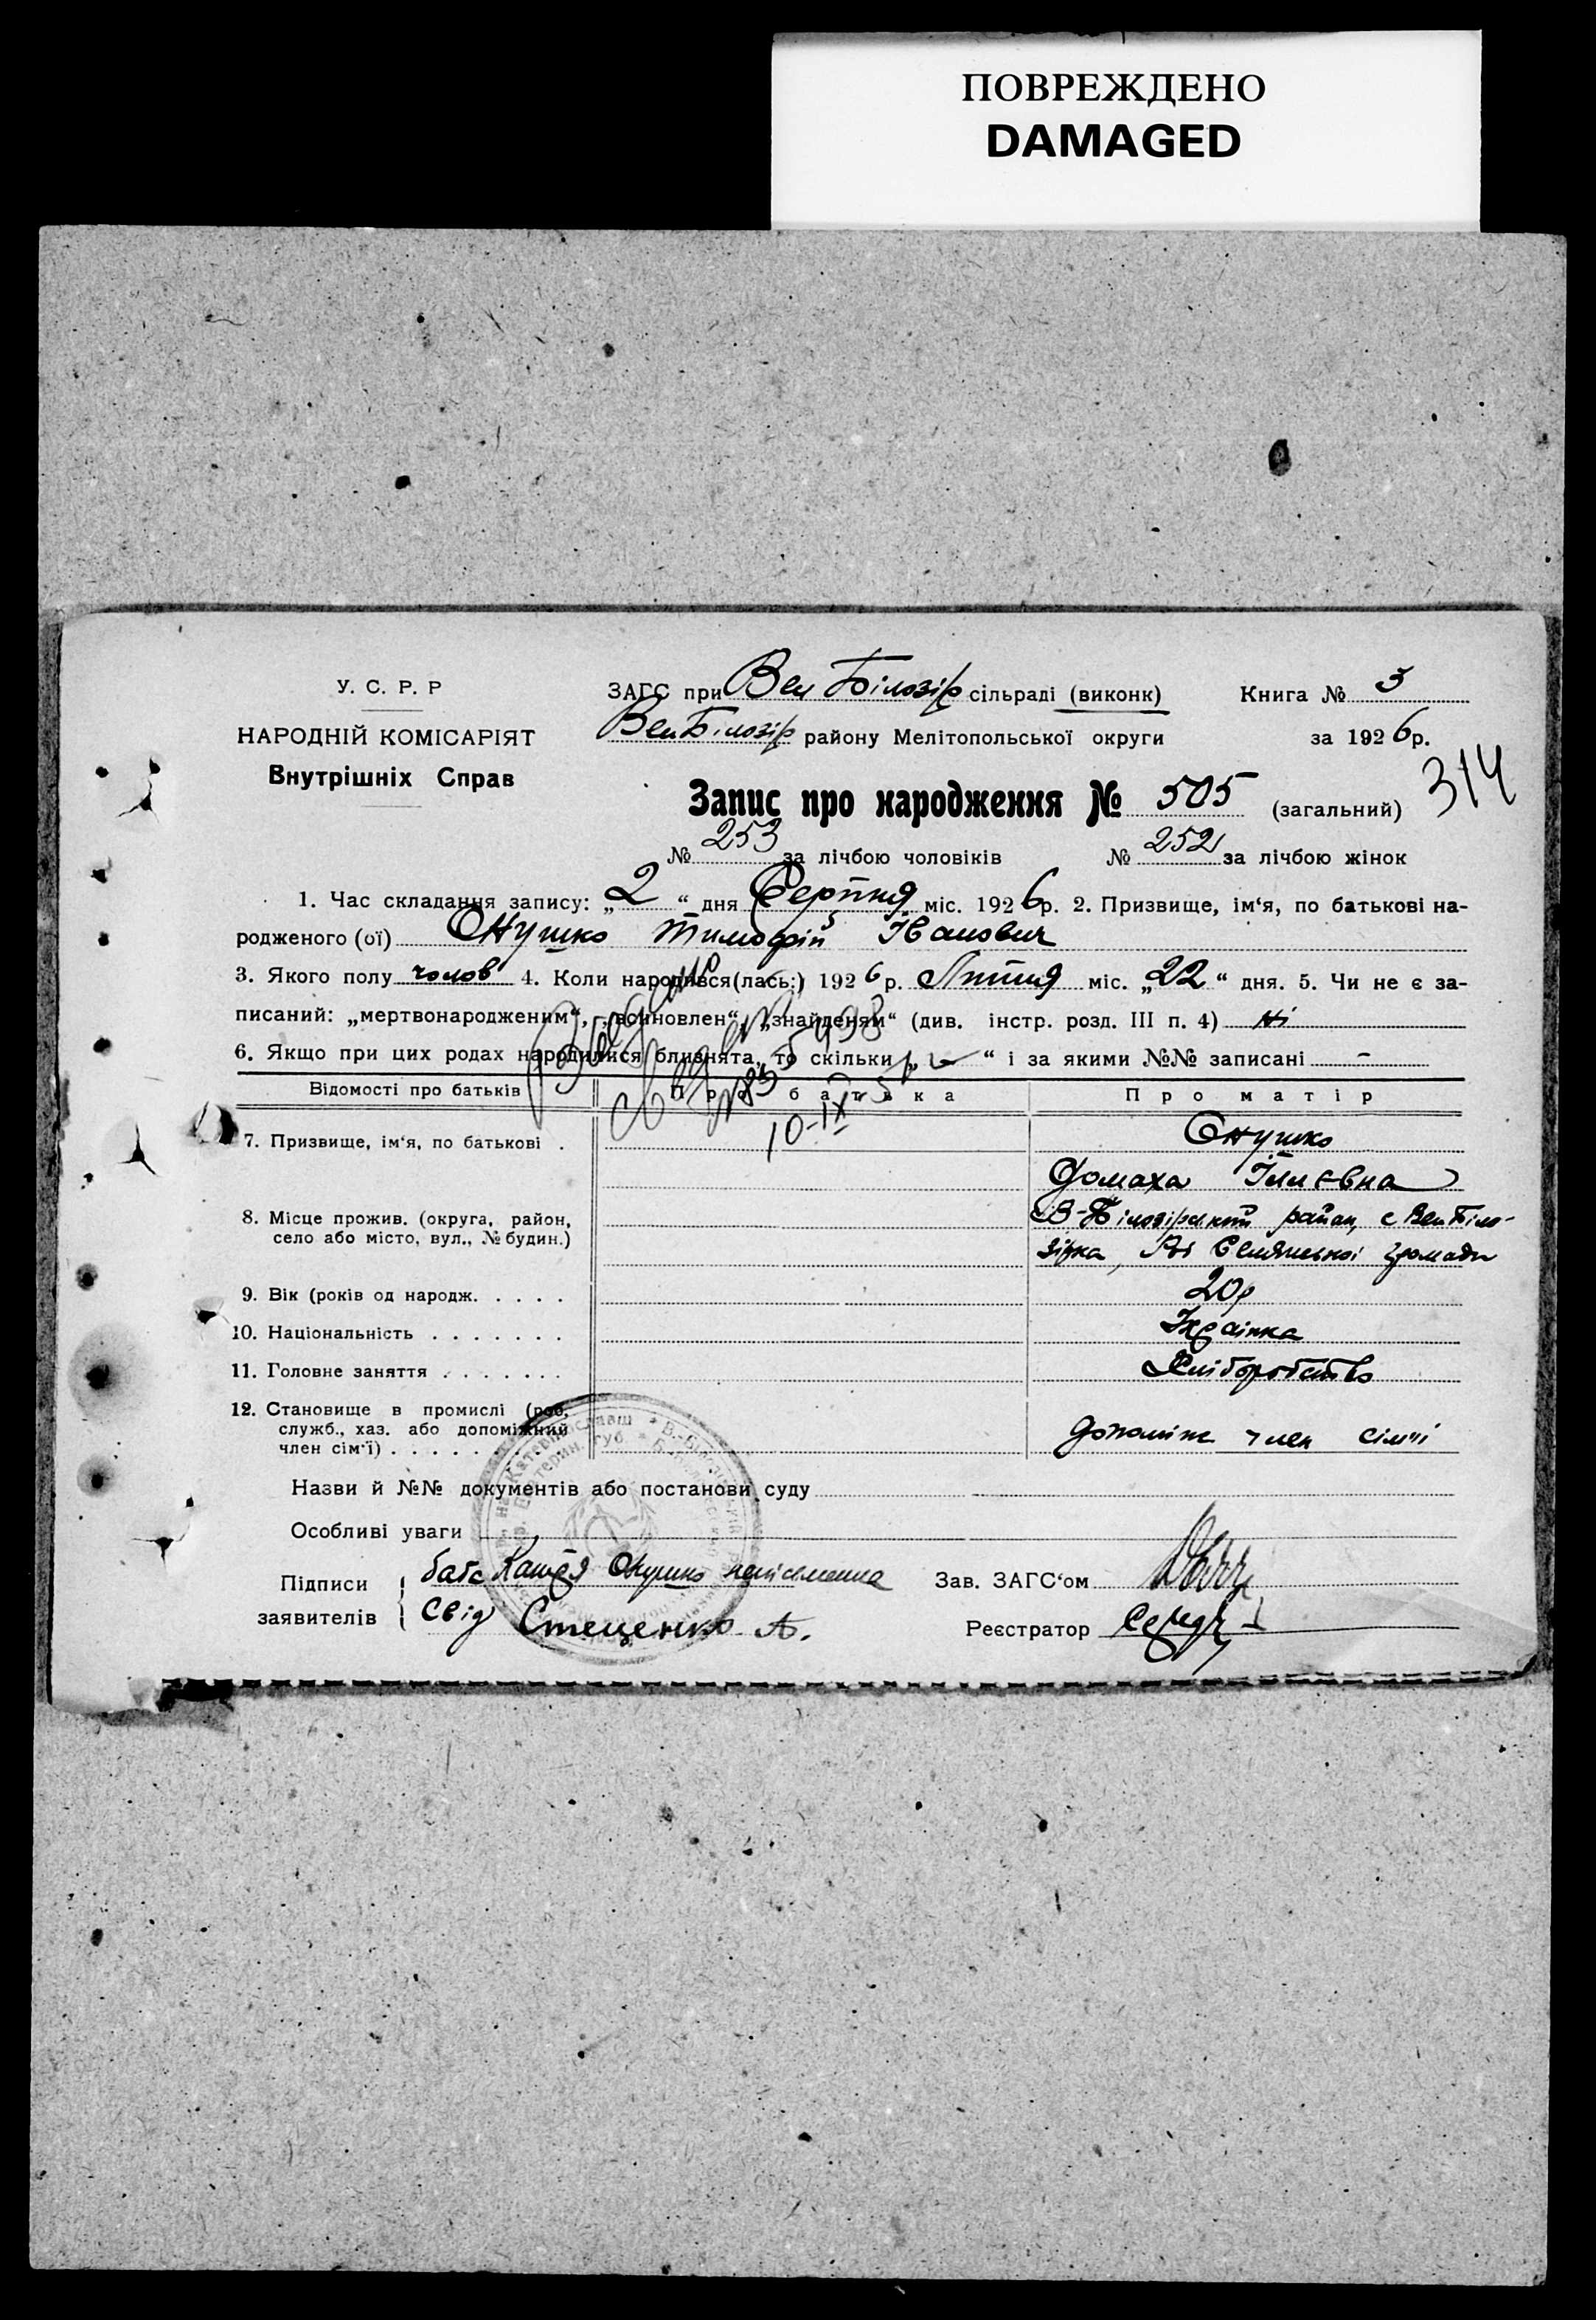 ПОВРЕЖДЕНО
DAMAGED
У. С. Р. Р
НАРОДНІЙ КОМІСАРІЯТ
Внутрішніх Справ
ЗАГС при Вел Білозір сільраді (виконк)
Книга № 3
Вел Білозір району Мелітопольської округи
за 1926 р.
314
Запис про народження № 505 (загальний)
№ 253 за лічбою чоловіків № 252 за лічбою жінок
1. Час складання запису: „2“ дня Серпня міс. 1926 р. 2. Призвище, ім‘я, по батькові на-
родженого (ої) Онушко Тимофій Іванович
3. Якого полу чолов 4. Коли народився(лась:) 1926 р. Липня міс. „22“ дня. 5. Чи не є за-
писаний: „мертвонародженим“, „всиновлен“, „знайденям“ (див. інстр. розд. III п. 4) Ні
6. Якщо при цих родах народилися близнята, то скільки „ “ і за якими №№ записані -
10-IX
Відомості про батьків
Про батька
Про матір
7. Призвище, ім‘я, по батькові .
Онушко
Домаха Іллєвна
8. Місце прожив. (округа, район,
село або місто, вул., № будин.)
В-Білозірський район, с Вел Біло-
зірка, громади
9. Вік (років од народж. . . . .
20р
10. Національність . . . . . . .
Українка
11. Головне заняття . . . . . . .
Хліборобство
12. Становище в промислі (роб.
служб., хаз. або допоміжний
член сім‘ї) . . . . . . . . .
допоміж член сімʼї
Назви й №№ документів або постанови суду
Особливі уваги
Підписи
заявителів
Онушко неписьменна
Свід Стеценко А.
Зав. ЗАГС‘ом
Реєстратор